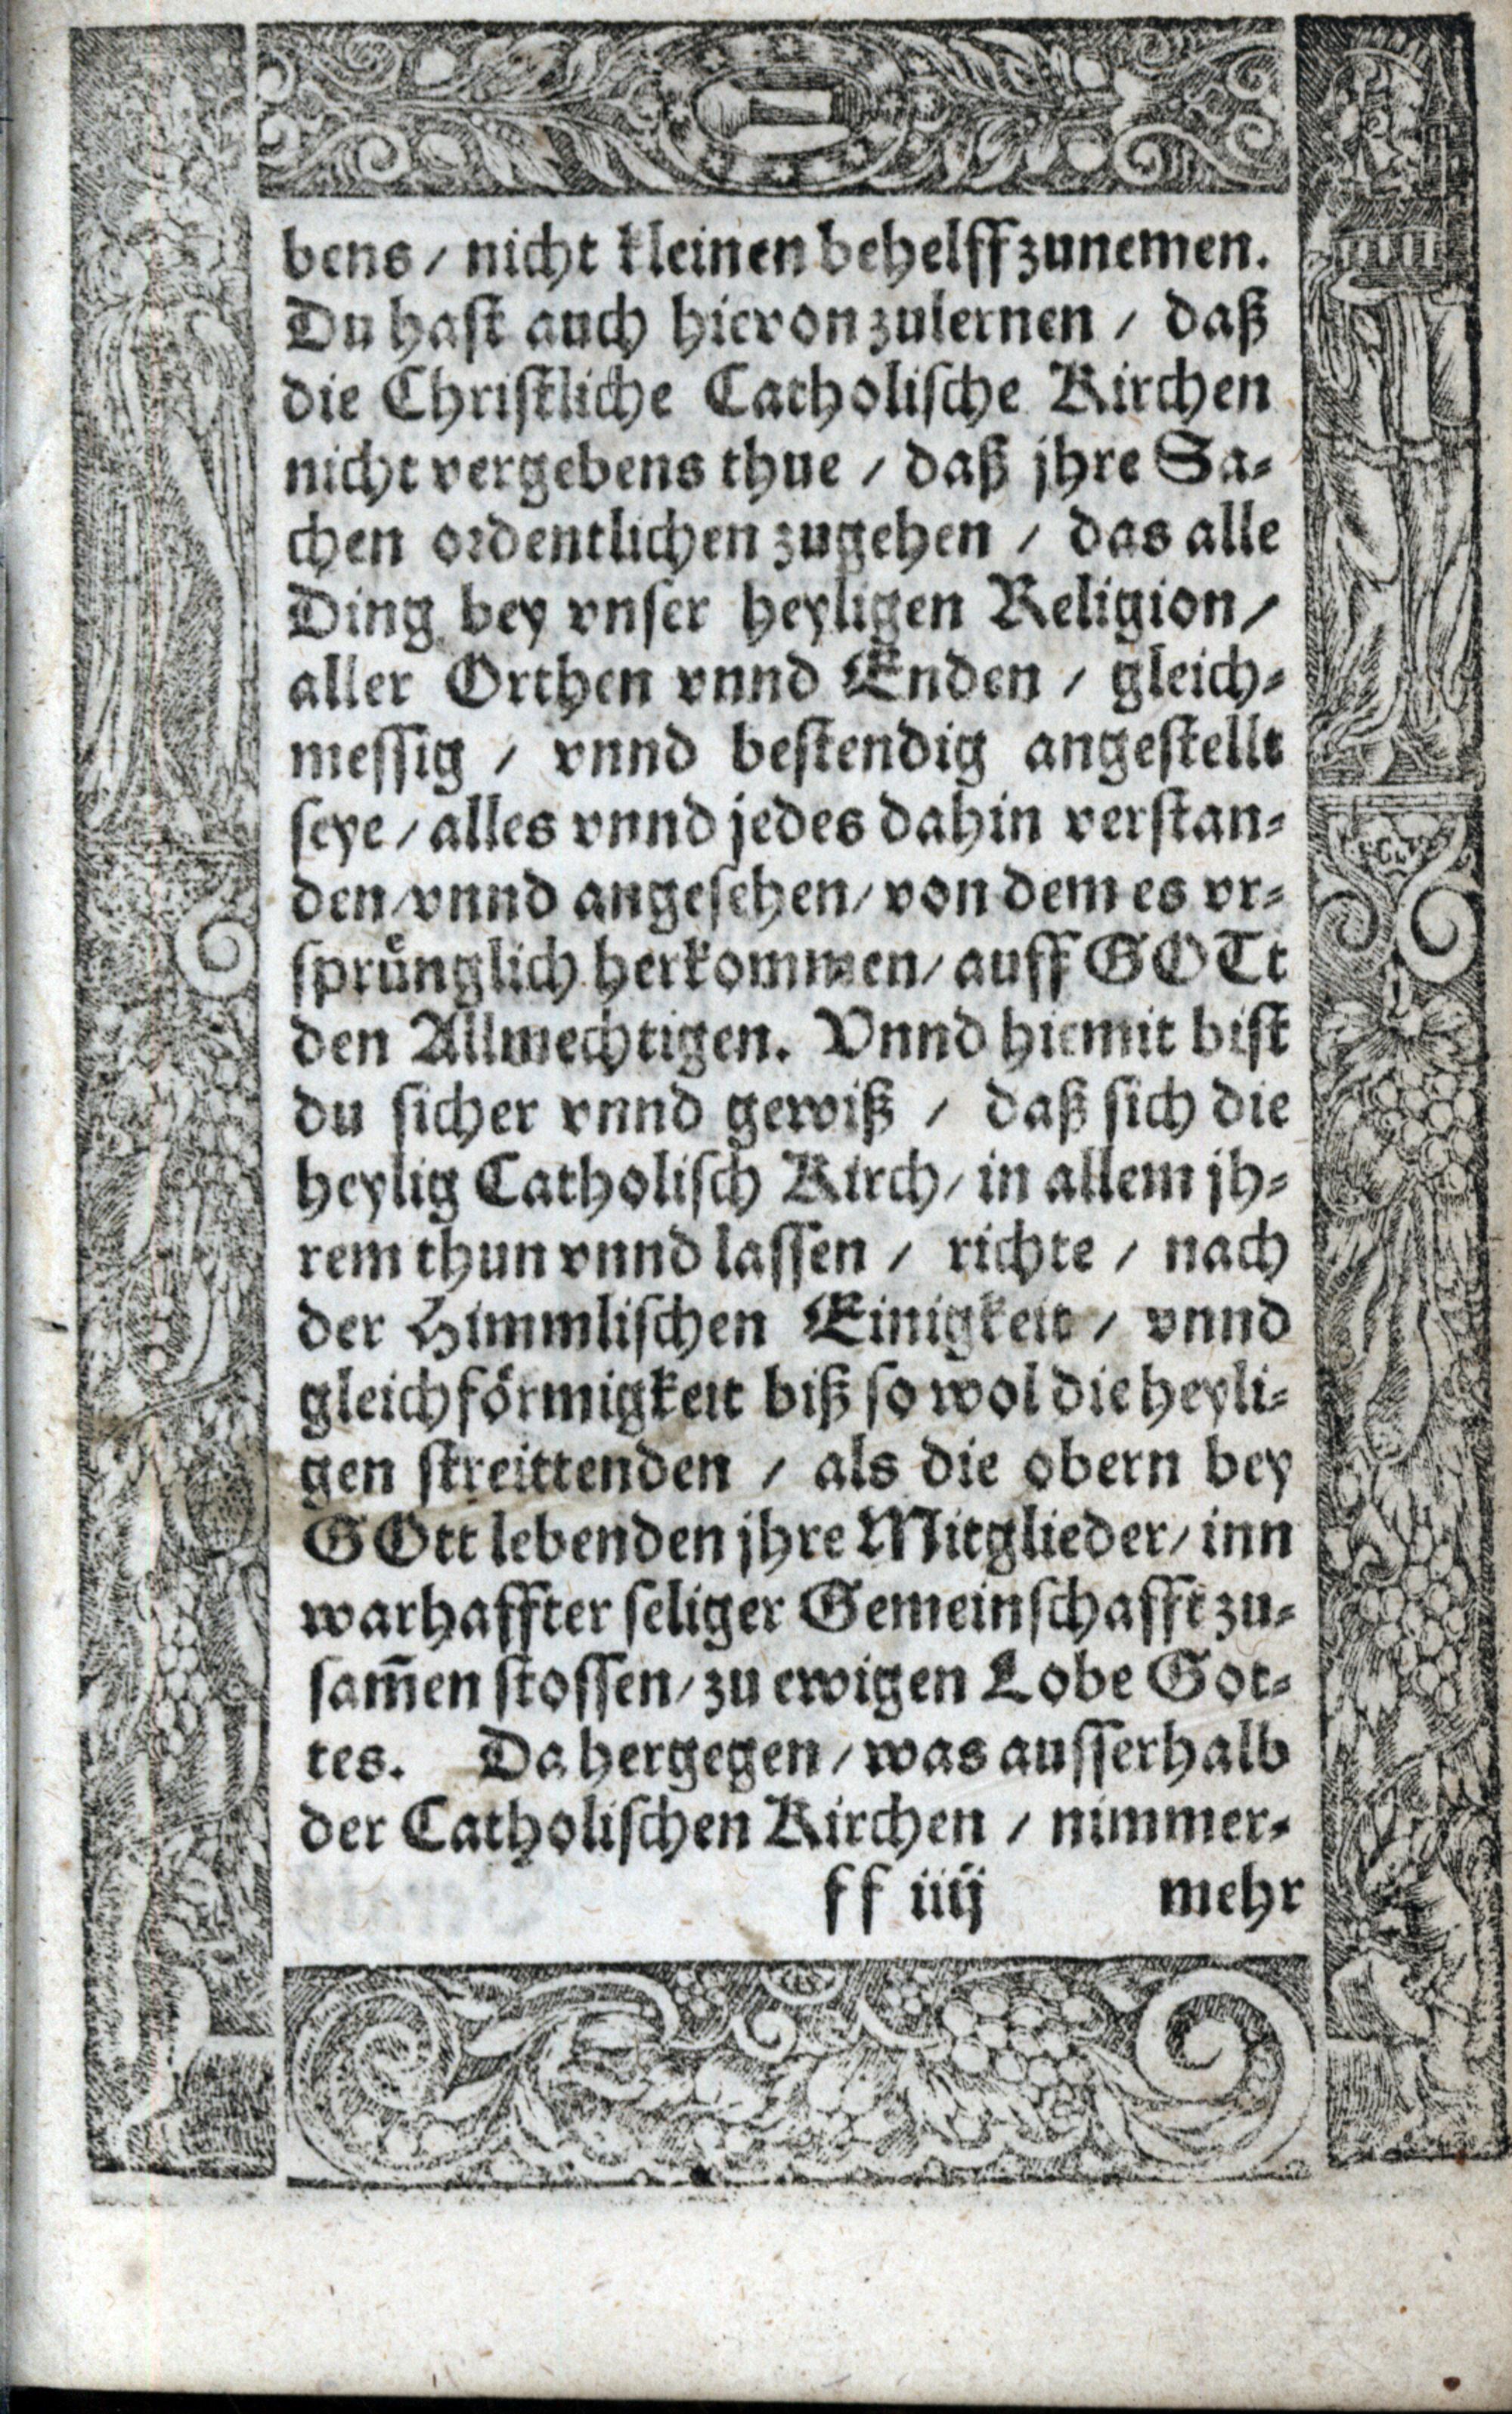 bens / nicht kleinen behelff zunemen.
Du hast auch hievon zulernen / daß
die Christliche Catholische Kirchen
nicht vergebens thue / daß jhre Sa⸗
chen ordentlichen zugehen / das alle
Ding bey vnser heyligen Religion /
aller Orthen vnnd Enden / gleich⸗
messig / vnnd bestendig angestellt
seye / alles vnnd jedes dahin verstan⸗
den / vnnd angesehen / von dem es vr⸗
sprünglich herkommen / auff GOTt
den Allmechtigen. Vnnd hiemit bist
du sicher vnnd gewiß / daß sich die
heylig Catholisch Kirch / in allem jh⸗
rem thun vnnd lassen / richte / nach
der Himmlischen Einigkeit / vnnd
gleichförmigkeit biß so wol die heyli⸗
gen streittenden / als die obern bey
GOtt lebenden jhre Mitglieder / inn
warhaffter seliger Gemeinschafft zu⸗
sam̄en stossen / zu ewigen Lobe Got⸗
tes. Da hergegen / was ausserhalb
der Catholischen Kirchen / nimmer⸗
ff iiij mehr